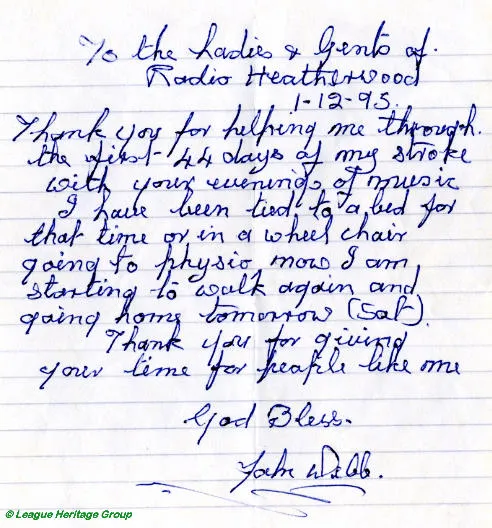 To the Ladies & Gents of.
Radio Heatherwood
1-12-95.
Thank you for helping me through.
the first 44 days of my stroke
with your evenings of music
I have been tied to a bed for
that time or in a wheel chair
going to physio now I am
starting to walk again and
going home tomorrow (Sat).
Thank you for giving
your time for people like me
God Bless.
John Webb.
© League Heritage Group